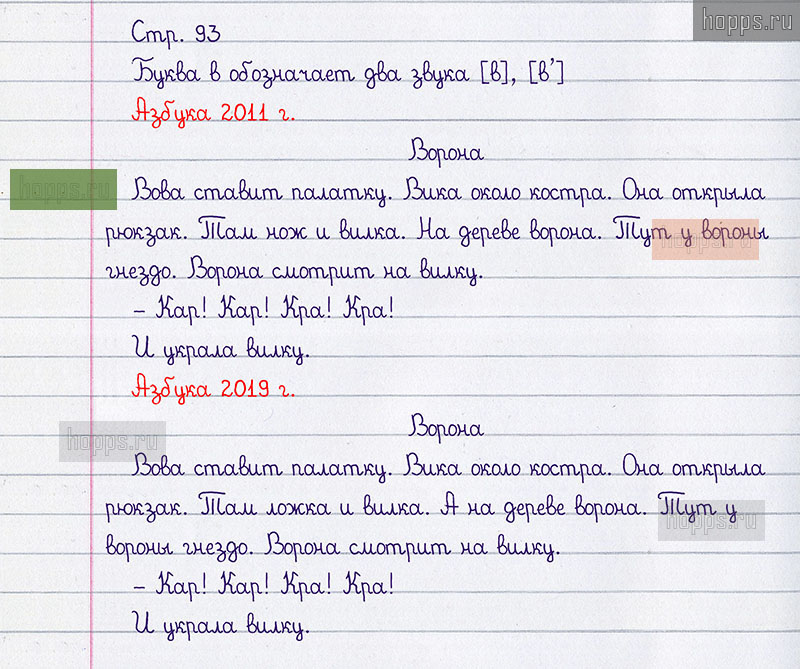 hopps.ru
Стр. 93
Буква в обозначает два звука [в], [в']
Азбука 2011 г.
Ворона
hopps.ru
Вова ставит палатку. Вика около костра. Она открыла
рюкзак. Там нож и вилка. На дереве ворона. Тут у вороны
hopps.ru
гнездо. Ворона смотрит на вилку.
– Кар! Кар! Кра! Кра!
И украла вилку.
Азбука 2019 г.
Ворона
hopps.ru
Вова ставит палатку. Вика около костра. Она открыла
рюкзак. Там ложка и вилка. А на дереве ворона. Тут у
hopps.ru
вороны гнездо. Ворона смотрит на вилку.
– Кар! Кар! Кра! Кра!
И украла вилку.